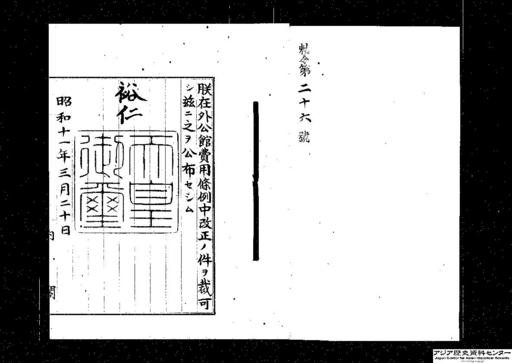 勅令第二十六號
朕在外公館費用條例中改正ノ件ヲ裁可
シ茲ニ之ヲ公布セシム
裕仁
天皇
御璽
昭和十一年三月二十日
内閣
アジア歴史資料センター
Japan Center for Asian Historical Records